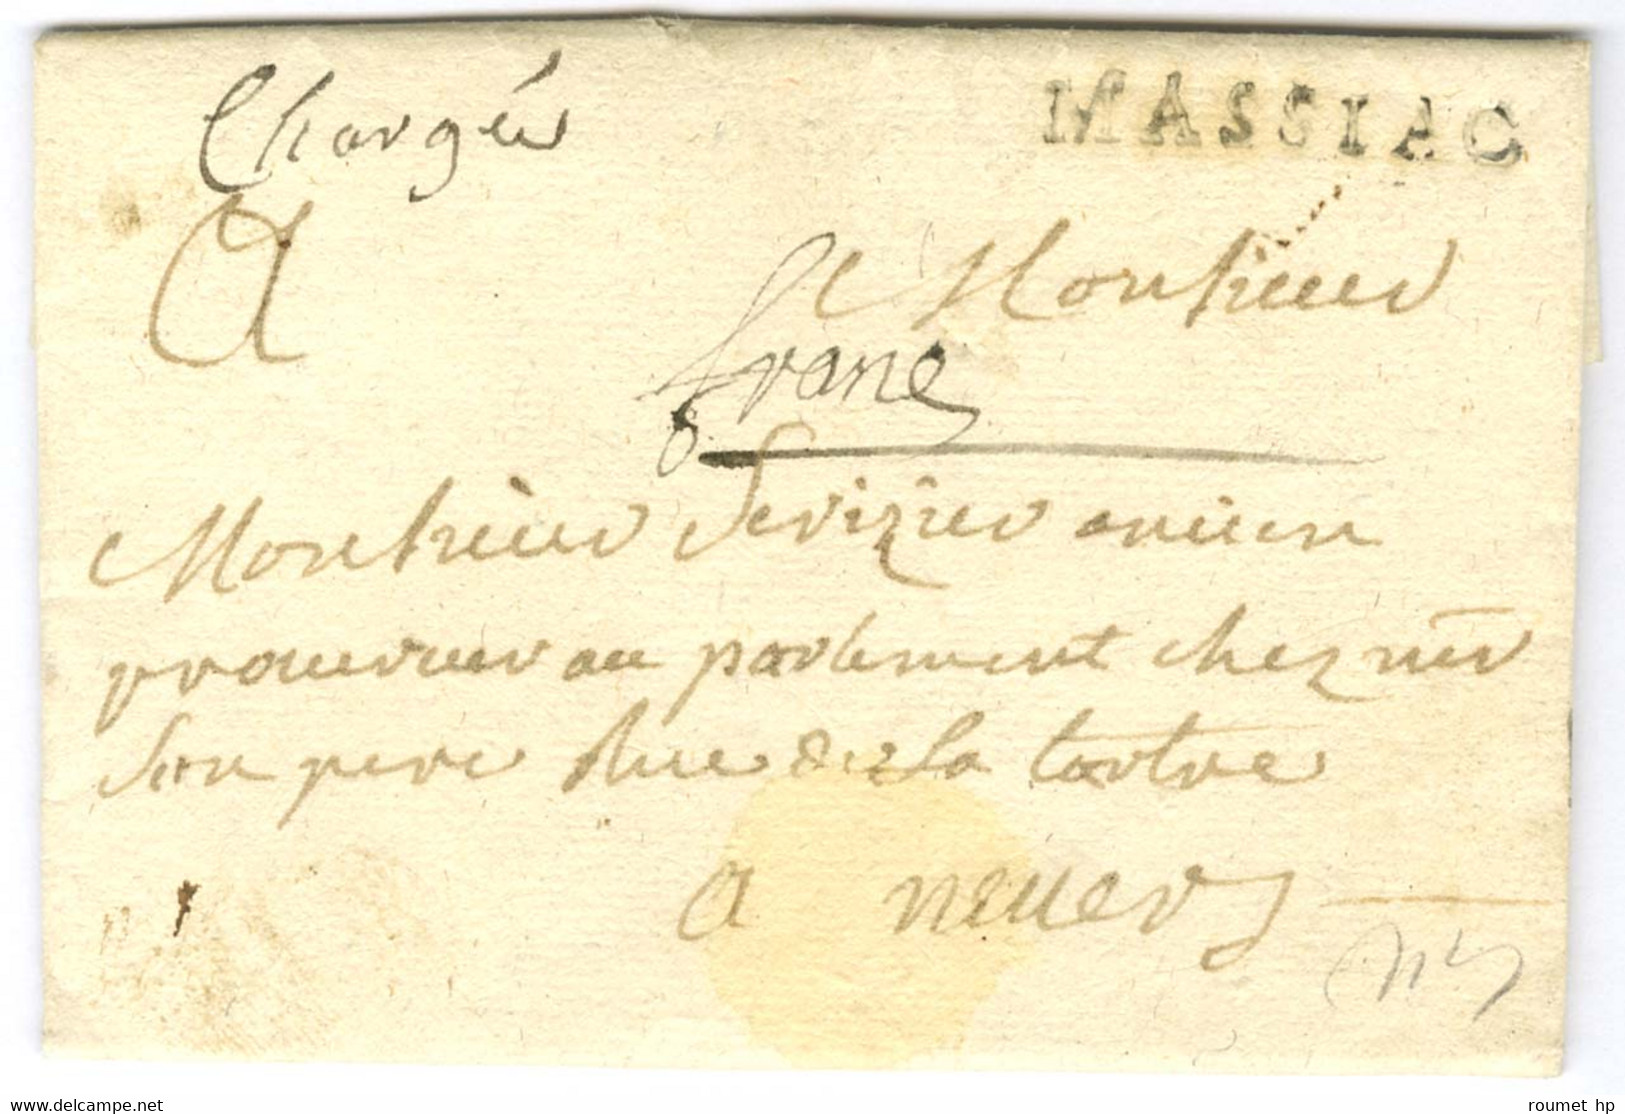 Chargée
MASSIAC
A Monsieur
franc
Monsieur Sevizier ancien
procureur au parlement chez mr
son pere Rue de La tartre
a nevers
www.delcampe.net
roumet hp